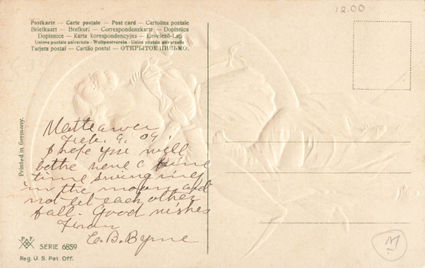 12.00
Postkarte — Carte postale — Post card — Cartolina postale
Briefkaart — Brefkort — Correspondenzkarte — Dopisnica
Dopisnice — Karta korrespondencyjna — Levelező-Lap
Unione postale universale — Weltpostverein — Union postale universelle
Tarjeta postal — Cartão postal — ОТКРЫТОЕ ПИСЬМО.
Printed in Germany.
Matteawan
Feb. 9, 09.
I hope you will
bothe have a fine
time swinging
in the moon and
not let each other
fall. Good wishes
From
C. B. Byrne
SERIE 6859
Reg. U. S. Pat. Off.
M